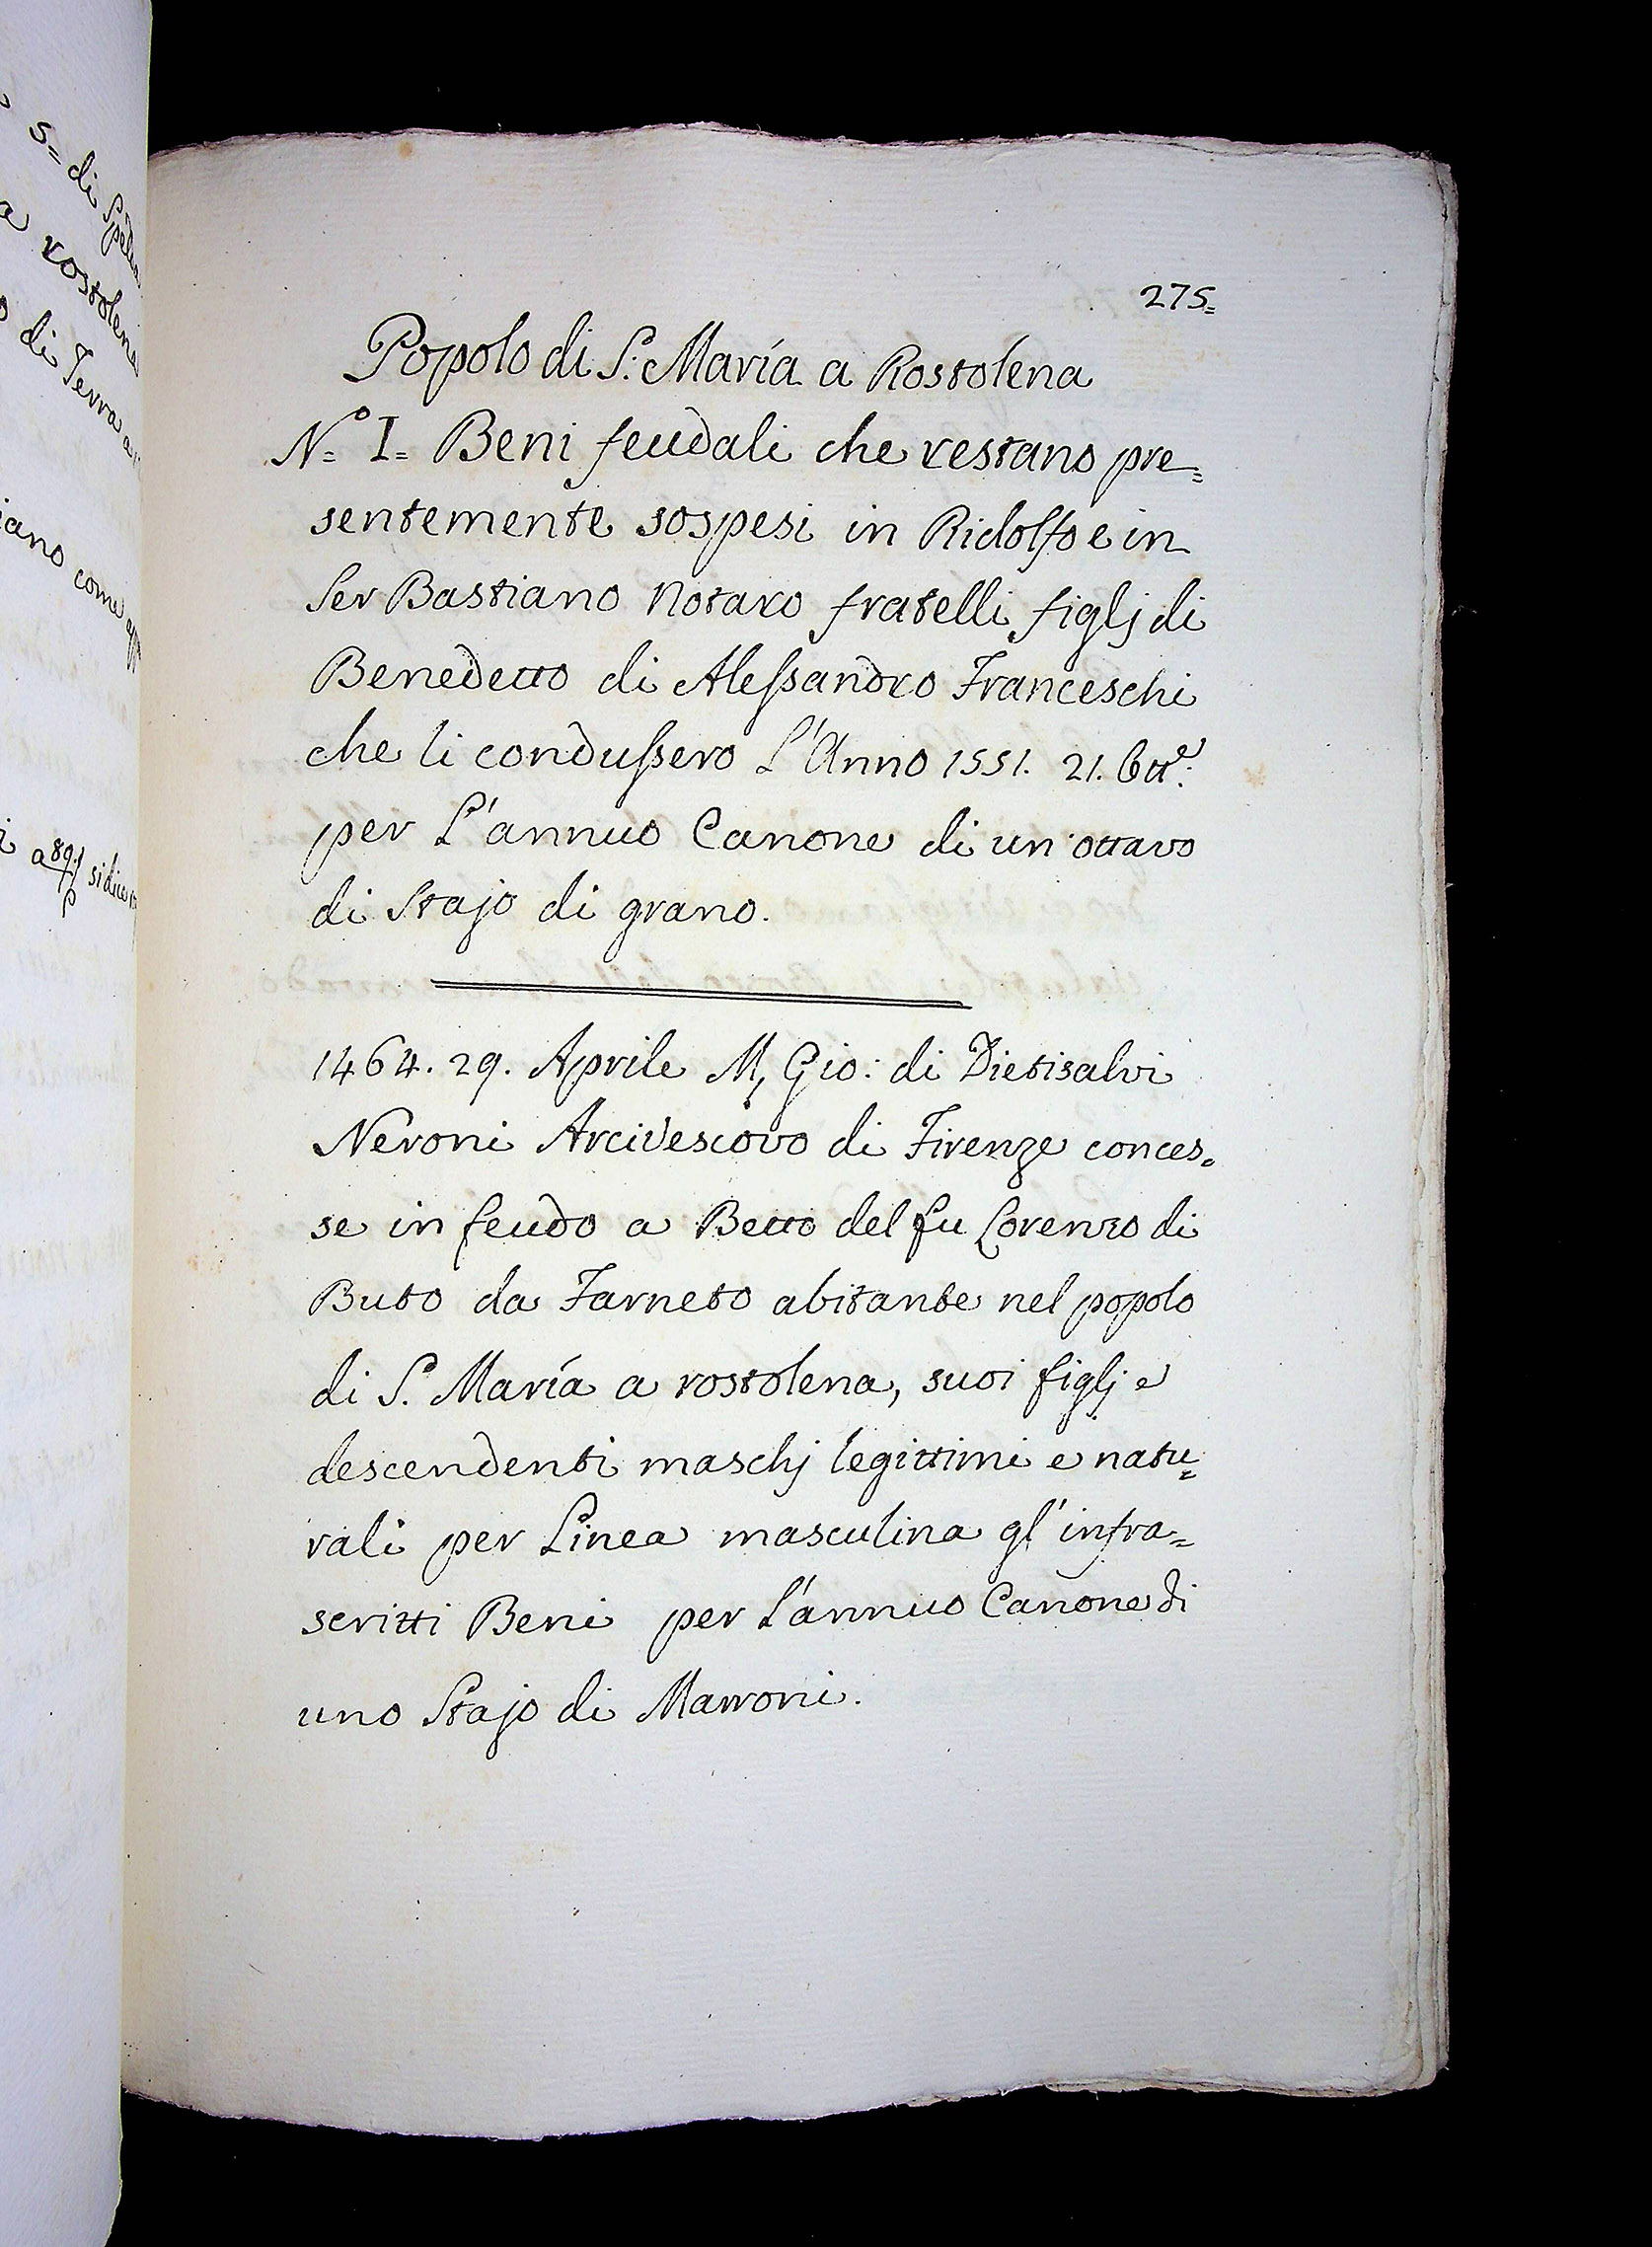 275=
Popolo di S. Maria a Rostolena
N.º I= Beni feudali che restano pre=
sentemente sospesi in Ridolfo e in
Ser Bastiano Notaro fratelli figlj di
Benedetto di Alessandro Franceschi
che li condussero L'Anno 1551. 21. 6tt.e
per L'annuo Canone di un'ottavo
di Stajo di grano.
1464. 29. Aprile M, Gio: di Dietisalvi
Neroni Arcivescovo di Firenze conces=
se in feudo a Betto del fu Lorenzo di
Buto da Farneto abitante nel popolo
di S. Maria a rostolena, suoi figlj e
descendenti maschj legittimi e natu=
rali per Linea masculina gl'infra=
scritti Beni per L'annuo Canone di
uno Stajo di Marroni.
s= di
a rostolena
di Terra
iano come
si dice